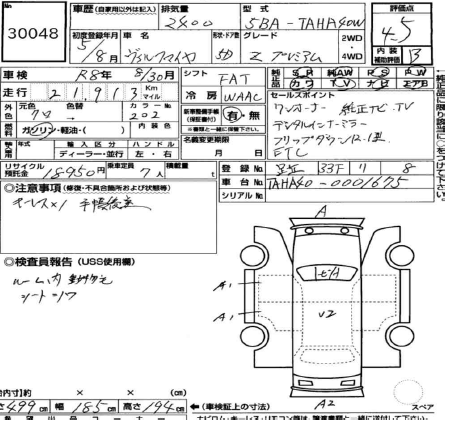 30048
車歴 (自家用以外は記入)
排気量 2400
型式 5BA-TAHA40W
評価点 4.5
初度登録年月 5/8月
車名 ヴェルファイヤ
形状・ドア数 5D
グレード Z プレミアム
2WD
4WD
内装補助評価 B
車検 R8年 8/30月
シフト FAT
純正品 SR AW PS PW
カワ TV ナビ エアB
走行 21,913 Km マイル
冷房 WAAC
セールスポイント
外色 元色 クロ 色替
カラーNo 202
新車整備手帳(保証書付) 有・無
※書類と一緒に保管下さい。
ワンオーナー 純正ナビ、TV
デジタルインナーミラー
フリップダウン12.1型
ETC
燃料 ガソリン・軽油・( )
内装色
名義変更期限 月 日
輸入車 年モデル
輸入区分 ディーラー・並行
ハンドル 左・右
リサイクル預託金 18950円
乗車定員 7人
積載量 t
登録番号 33T リ 8
車台No. TAHA40-0001675
シリアルNo.
←純正品に限り該当に○をつけて下さい。
◎注意事項 (修復・不具合箇所および状態等)
キーレス×1 手帳後送
◎検査員報告 (USS使用欄)
ルーム内
シートシワ
A
A1
A1
V2
A2
スペア
内寸】約 × × (cm)
さ499cm 幅185cm 高さ194cm
←(車検証上の寸法)